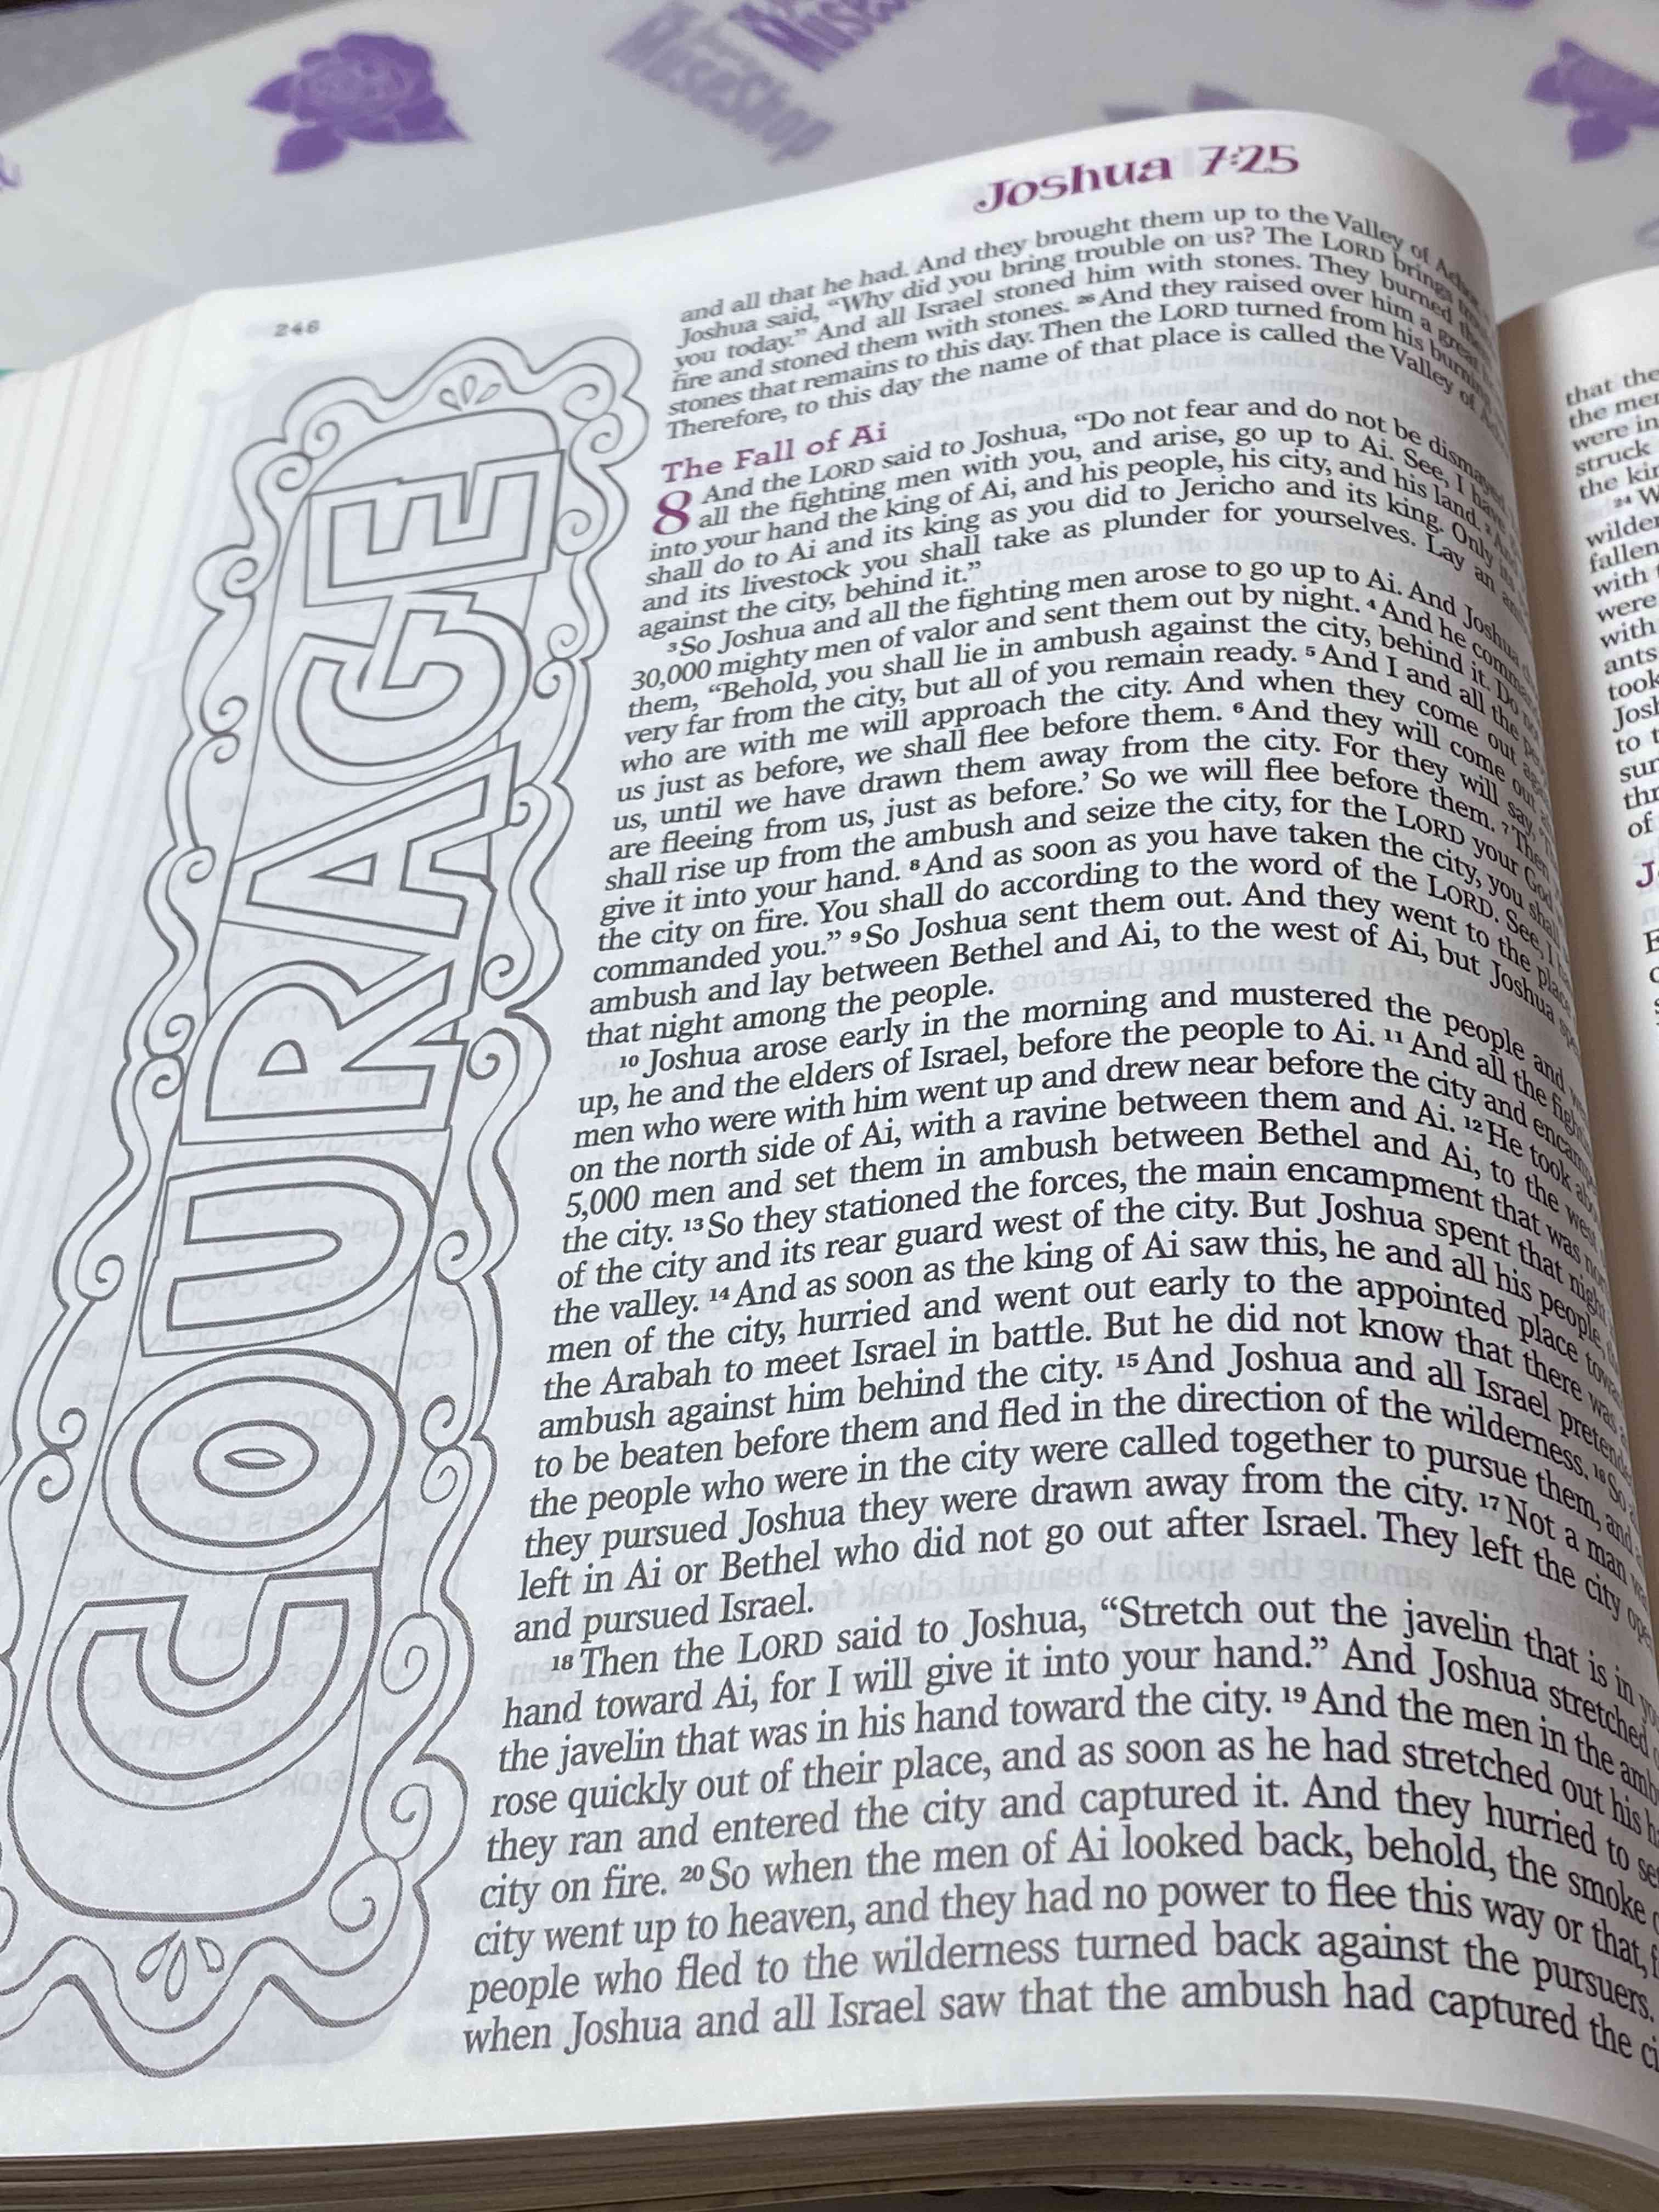 MuseShop
Joshua 7:25
246
COURAGE
and all that he had. And they brought them up to the Valley of
Joshua said, “Why did you bring trouble on us? The LORD brings
you today.” And all Israel stoned him with stones. They burned
fire and stoned them with stones. 26 And they raised over him a great
stones that remains to this day. Then the LORD turned from his burning
Therefore, to this day the name of that place is called the Valley of
The Fall of Ai
8 And the LORD said to Joshua, “Do not fear and do not be dismayed
all the fighting men with you, and arise, go up to Ai. See, I have
into your hand the king of Ai, and his people, his city, and his land.
shall do to Ai and its king as you did to Jericho and its king. Only
and its livestock you shall take as plunder for yourselves. Lay an
against the city, behind it.”
3 So Joshua and all the fighting men arose to go up to Ai. And Joshua
30,000 mighty men of valor and sent them out by night. 4 And he
them, “Behold, you shall lie in ambush against the city, behind it. Do not
very far from the city, but all of you remain ready. 5 And I and all the
who are with me will approach the city. And when they come out
us just as before, we shall flee before them. 6 And they will come out
us, until we have drawn them away from the city. For they will say,
are fleeing from us, just as before.’ So we will flee before them. 7 Then
shall rise up from the ambush and seize the city, for the LORD your God
give it into your hand. 8 And as soon as you have taken the city, you shall
the city on fire. You shall do according to the word of the LORD. See, I
commanded you.” 9 So Joshua sent them out. And they went to the place
ambush and lay between Bethel and Ai, to the west of Ai, but Joshua
that night among the people.
10 Joshua arose early in the morning and mustered the people and
up, he and the elders of Israel, before the people to Ai. 11 And all the
men who were with him went up and drew near before the city and
on the north side of Ai, with a ravine between them and Ai. 12 He took
5,000 men and set them in ambush between Bethel and Ai, to the west
the city. 13 So they stationed the forces, the main encampment that was
of the city and its rear guard west of the city. But Joshua spent that night
the valley. 14 And as soon as the king of Ai saw this, he and all his people,
men of the city, hurried and went out early to the appointed place
the Arabah to meet Israel in battle. But he did not know that there was
ambush against him behind the city. 15 And Joshua and all Israel
to be beaten before them and fled in the direction of the wilderness. 16 So
the people who were in the city were called together to pursue them, and
they pursued Joshua they were drawn away from the city. 17 Not a man
left in Ai or Bethel who did not go out after Israel. They left the city
and pursued Israel.
18 Then the LORD said to Joshua, “Stretch out the javelin that is in
hand toward Ai, for I will give it into your hand.” And Joshua stretched
the javelin that was in his hand toward the city. 19 And the men in the
rose quickly out of their place, and as soon as he had stretched out his
they ran and entered the city and captured it. And they hurried to
city on fire. 20 So when the men of Ai looked back, behold, the smoke
city went up to heaven, and they had no power to flee this way or that,
people who fled to the wilderness turned back against the pursuers.
when Joshua and all Israel saw that the ambush had captured the
that the
the
were in
struck
the
24
wilder
fallen
with
were
with
ants
took
to
of